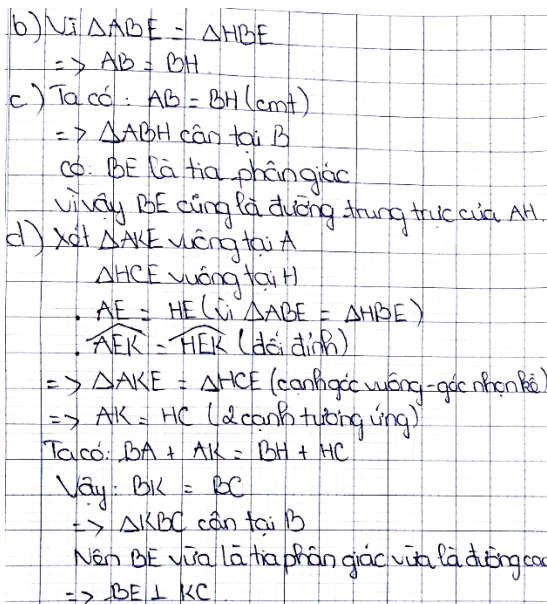 b) Vì ΔABE = ΔHBE
=> AB = BH.
c) Ta có : AB = BH (cmt)
=> ΔABH cân tại B
có: BE là tia phân giác
vì vậy BE cũng là đường trung trực của AH.
d) Xét ΔAKE vuông tại A
ΔHCE vuông tại H
. AE = HE (vì ΔABE = ΔHBE)
. AEK = HEK (đối đỉnh)
=> ΔAKE = ΔHCE (cạnh góc vuông - góc nhọn kề)
=> AK = HC (2 cạnh tương ứng)
Ta có: BA + AK = BH + HC
Vậy: BK = BC
=> ΔKBC cân tại B
Nên BE vừa là tia phân giác vừa là đường cao
=> BE ⊥ KC